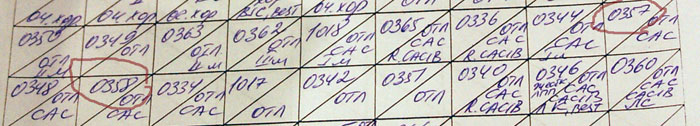 оч.хор оч.хор оч.хор ВТС, BEST оч.хор
0350 ОТЛ IM 0349 ОТЛ 0363 ОТЛ IIM 0362 ОТЛ IIIM 1018 ОТЛ САС IM 0365 ОТЛ САС R.CACIB 0336 ОТЛ САС R.CACIB 0344 ОТЛ САС 0357 ОТЛ САС
0348 ОТЛ САС 0358 ОТЛ САС 0334 ОТЛ САС 1017 ОТЛ 0342 ОТЛ 0351 ОТЛ 0340 ОТЛ САС R.CACIB 0346 ОТЛ САС CACIB ЛПП BEST 0360 ОТЛ САС CACIB ЛС